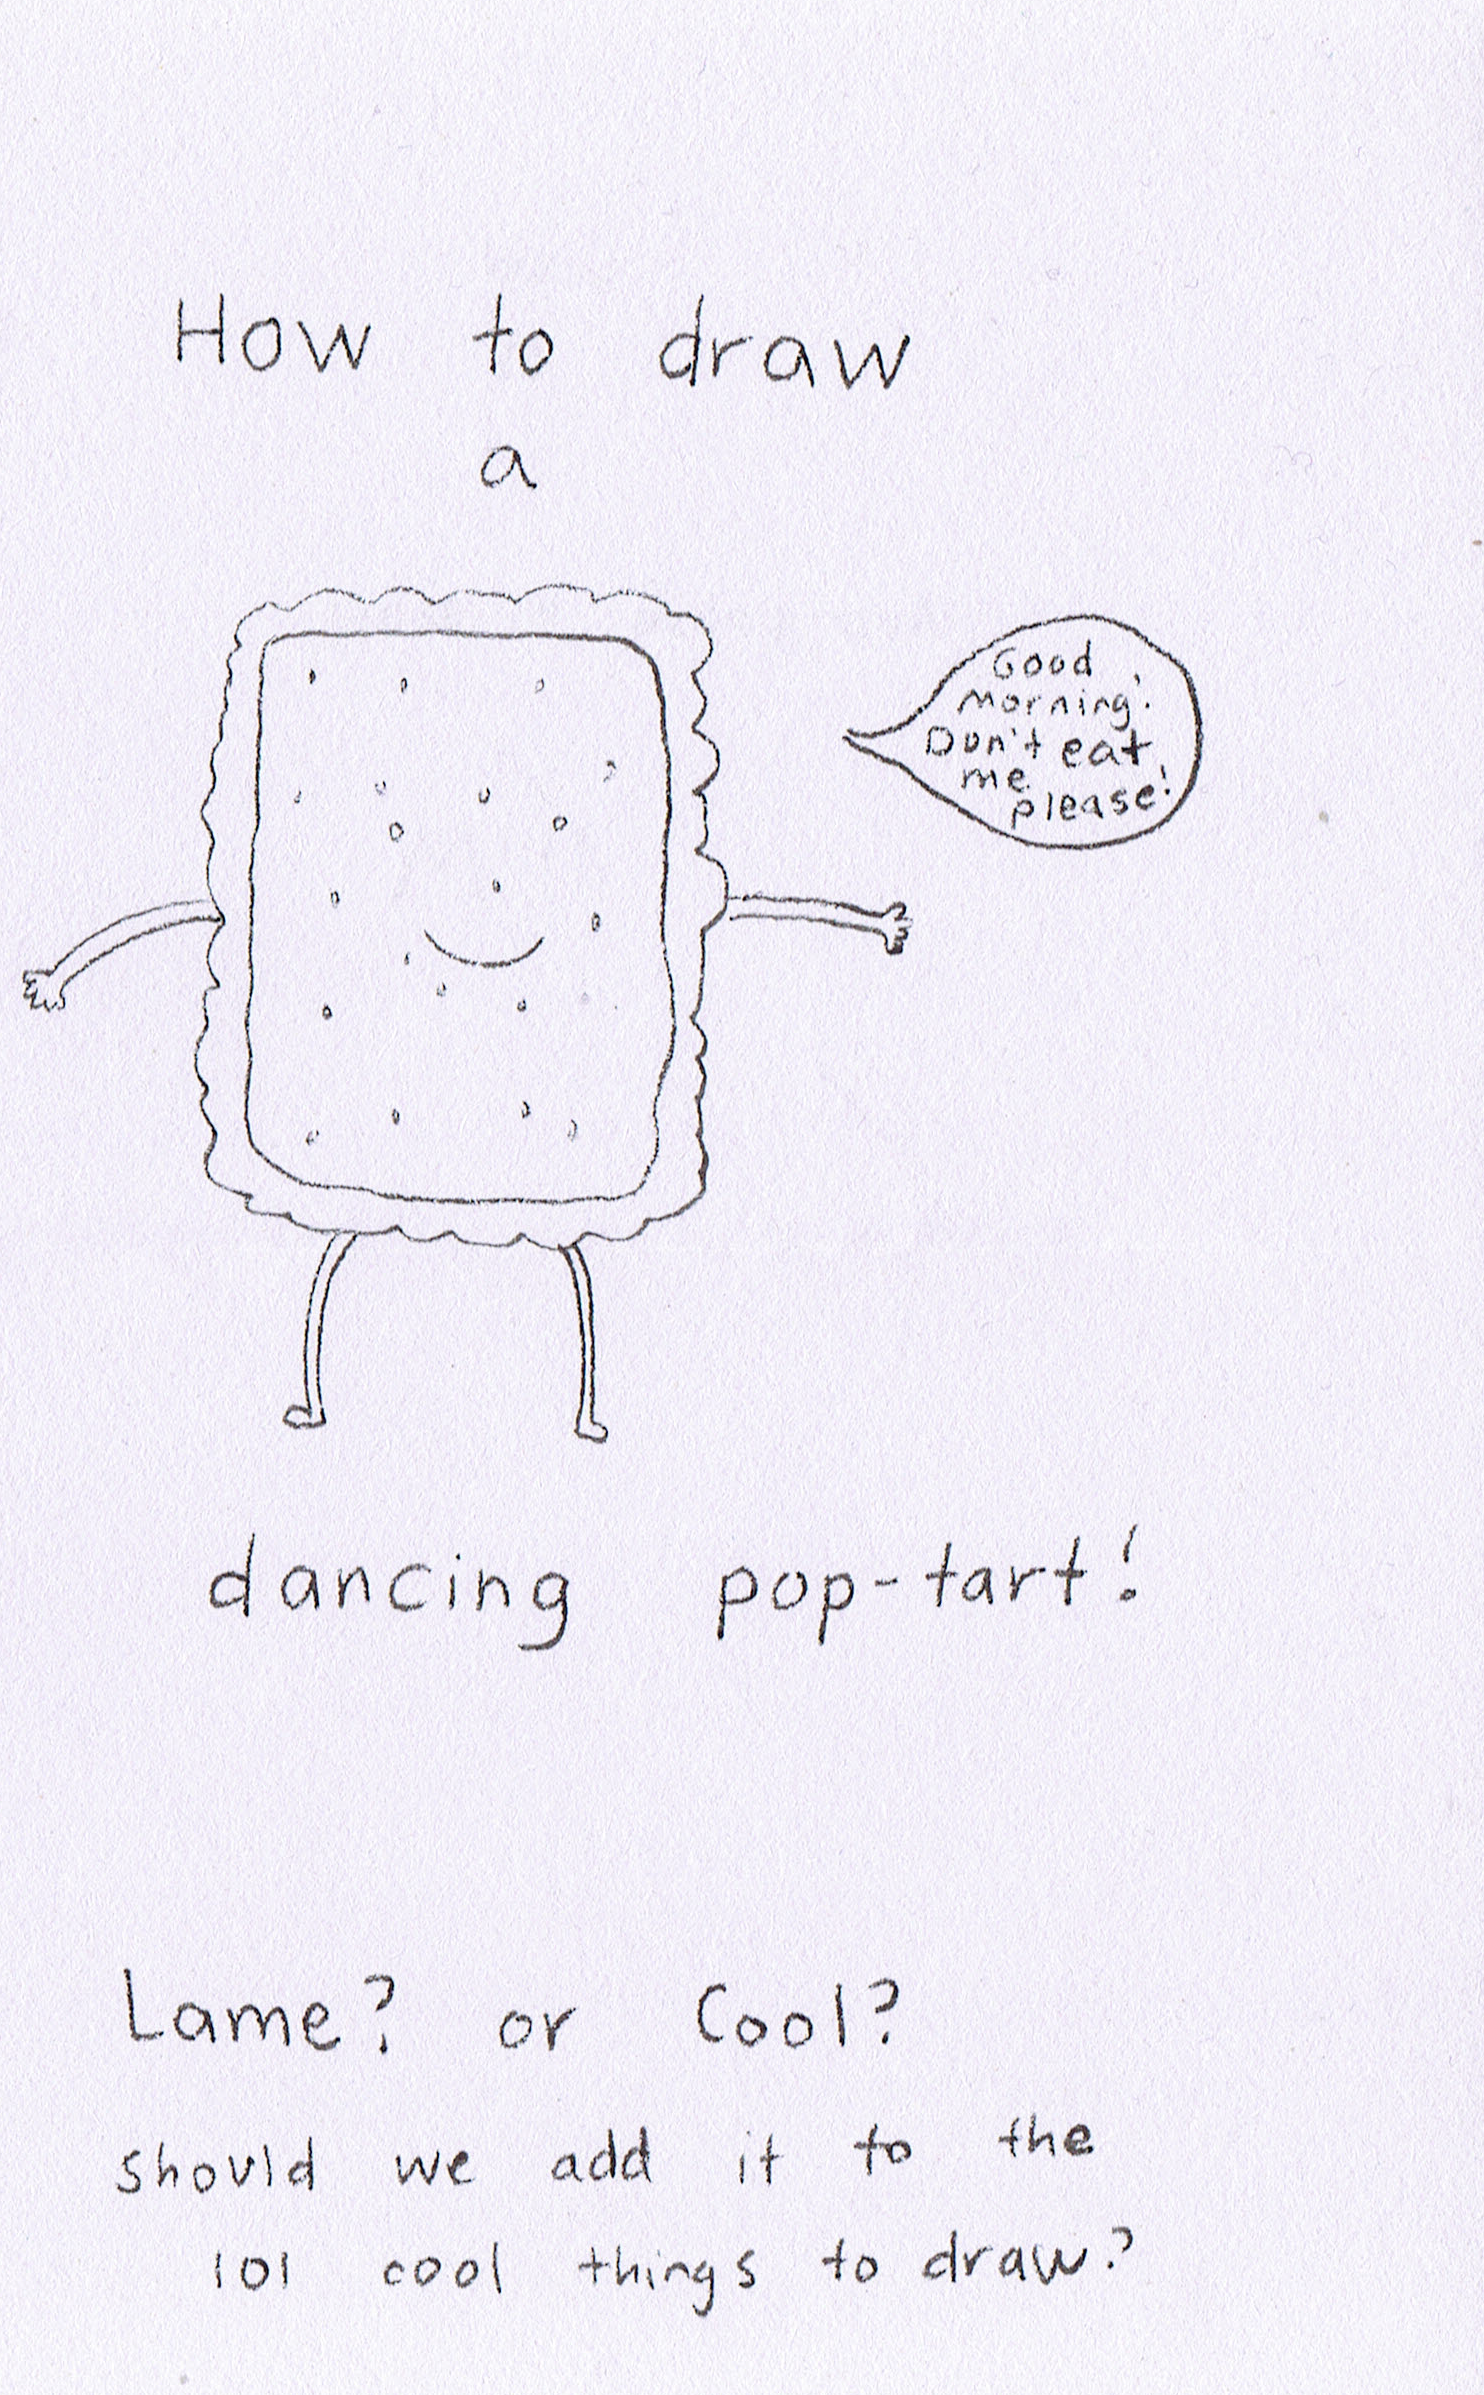 How to draw
a
Good
morning!
Don't eat
me
please!
dancing pop-tart!
Lame? or Cool?
should we add it to the
101 cool things to draw?